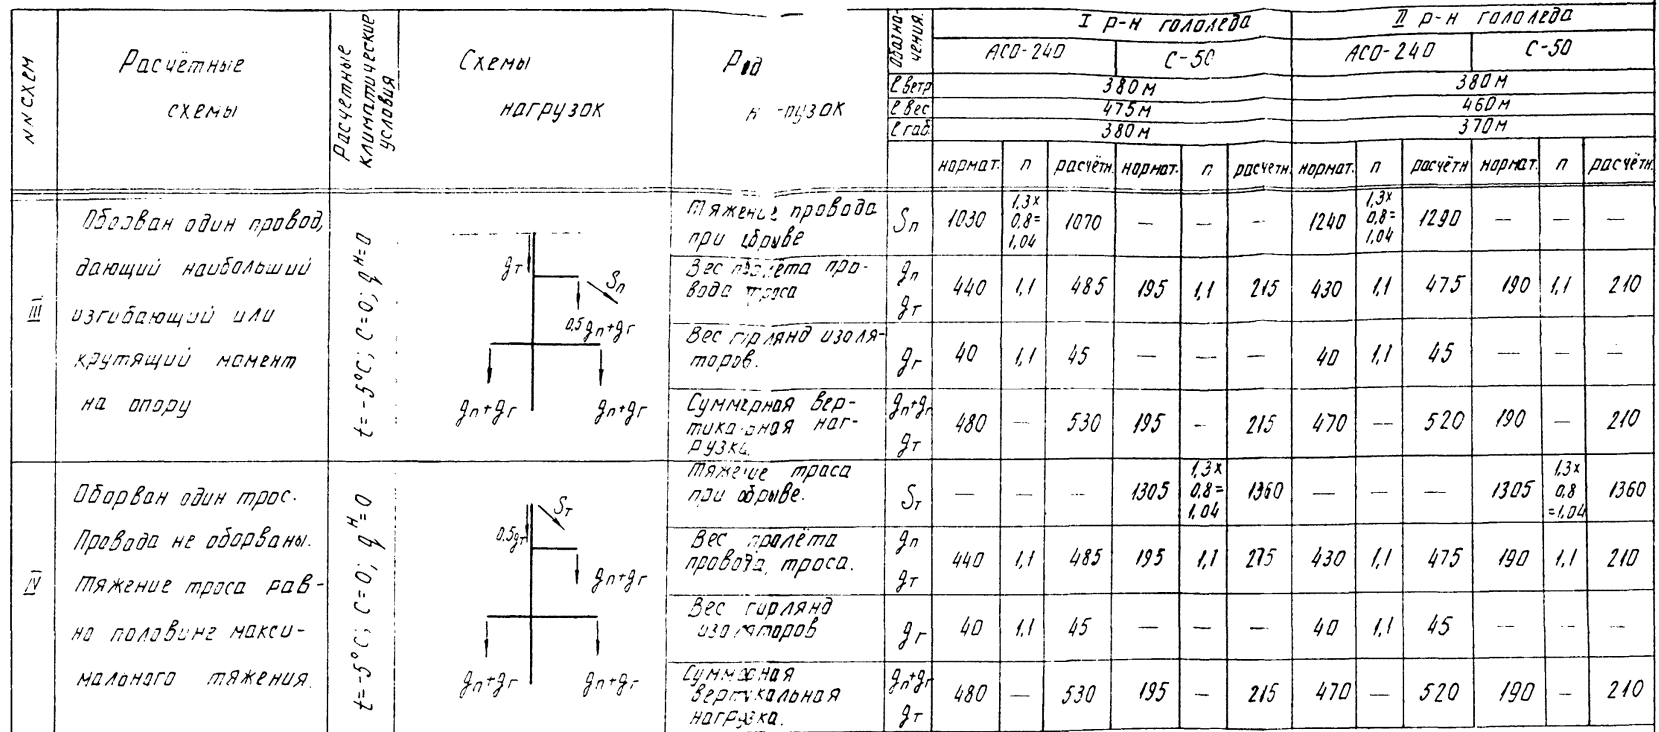 NN схем
Расчётные
схемы
Расчётные
климатические
условия
Схемы
нагрузок
Род
Обозна-
чения.
I р-н гололеда
II р-н гололеда
АСО-240
С-50
АСО-240
С-50
ℓ ветр
380м
380м
ℓ вес
475м
460м
ℓ габ.
380м
370м
нормат. n расчётн. нормат. n расчетн. нормат. n расчётн нормат. n расчётн.
III
Оборван один провод,
дающий наибольший
изгибающий или
крутящий момент
на опору
t=-5°С; С=0; qᴴ=0
gт
Sп
0,5gп+gг
gп+gг
gп+gг
Тяжение провода
при обрыве
Sп
1030 1,3х 0,8= 1,04 1070 — — — 1240 1,3х 0,8= 1,04 1290 — — —
Вес пролёта про-
вода троса
gп
gт
440 1,1 485 195 1,1 215 430 1,1 475 190 1,1 210
Вес гирлянд изоля-
торов.
gг
40 1,1 45 — — — 40 1,1 45 — — —
Суммарная вер-
тикальная наг-
рузка.
gп+gг
gт
480 — 530 195 — 215 470 — 520 190 — 210
IV
Оборван один трос.
Провода не оборваны.
Тяжение троса рав-
но половине макси-
мального тяжения.
t=-5°С; С=0; qᴴ=0
0,5gт
Sт
gп+gг
gп+gг
gп+gг
Тяжение троса
при обрыве.
Sт
— — — 1305 1,3х 0,8= 1,04 1360 — — — 1305 1,3х 0,8 =1,04 1360
Вес пролёта
провода, троса.
gп
gт
440 1,1 485 195 1,1 215 430 1,1 475 190 1,1 210
Вес гирлянд
изоляторов
gг
40 1,1 45 — — — 40 1,1 45 — — —
Суммарная
вертикальная
нагрузка.
gп+gг
gт
480 — 530 195 — 215 470 — 520 190 — 210